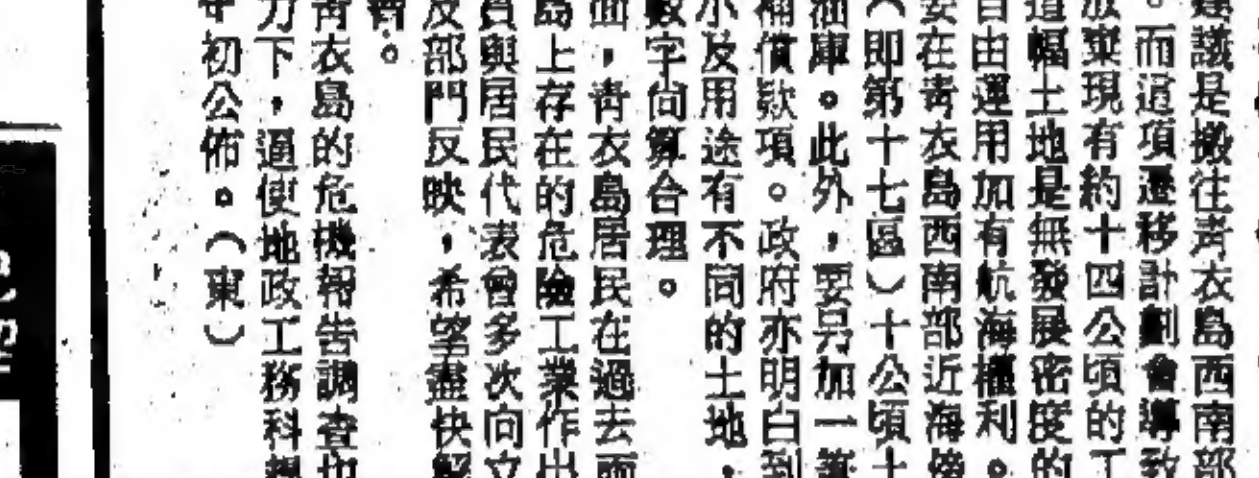 建議是搬往青衣島西南部
。而這項遷移計劃會導致
放棄現有約十四公頃的工
這幅土地是無發展密度的
自由運用加有航海權利。
要在青衣島西南部近海傍
（即第十七區）十公頃土
油庫。此外，要另加一筆
補償欵項。政府亦明白到
小及用途有不同的土地，
數字尙算合理。
面，青衣島居民在過去兩
島上存在的危險工業作出
員與居民代表曾多次向立
反部門反映，希望盡快解
青衣島的危機報告調查也
力下，逼使地政工務科提
年初公佈。（東）